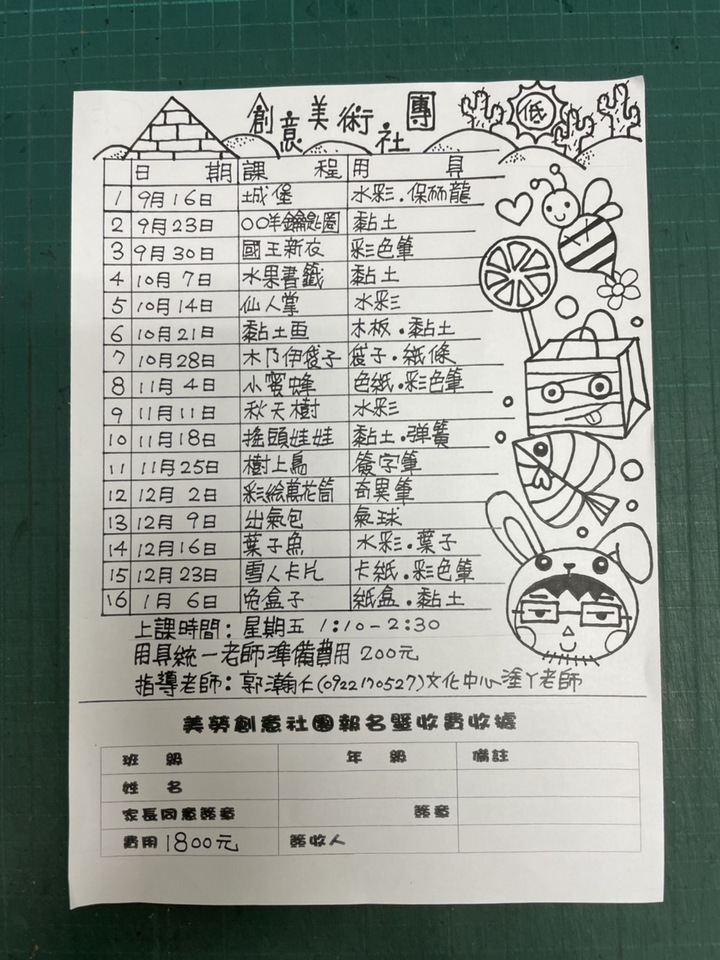 創意美術社團
低
日期 課程 用具
1 9月16日 城堡 水彩.保丽龍
2 9月23日 〇〇羊鑰匙圈 黏土
3 9月30日 國王新衣 彩色筆
4 10月7日 水果書籤 黏土
5 10月14日 仙人掌 水彩
6 10月21日 黏土画 木板.黏土
7 10月28日 木乃伊袋子 袋子.紙條
8 11月4日 小蜜蜂 色紙.彩色筆
9 11月11日 秋天樹 水彩
10 11月18日 搖頭娃娃 黏土.弹簧
11 11月25日 樹上鳥 簽字筆
12 12月2日 彩繪萬花筒 奇異筆
13 12月9日 出氣包 氣球
14 12月16日 葉子魚 水彩.葉子
15 12月23日 雪人卡片 卡紙.彩色筆
16 1月6日 兔盒子 紙盒.黏土
上課時間：星期五 1:10-2:30
用具統一老師準備費用 200元
指導老師：郭瀚仁(0922170527)文化中心塗丫老師
美勞創意社團報名暨收費收據
班級 年級 備註
姓名
家長同意簽章 簽章
費用 1800元 簽收人